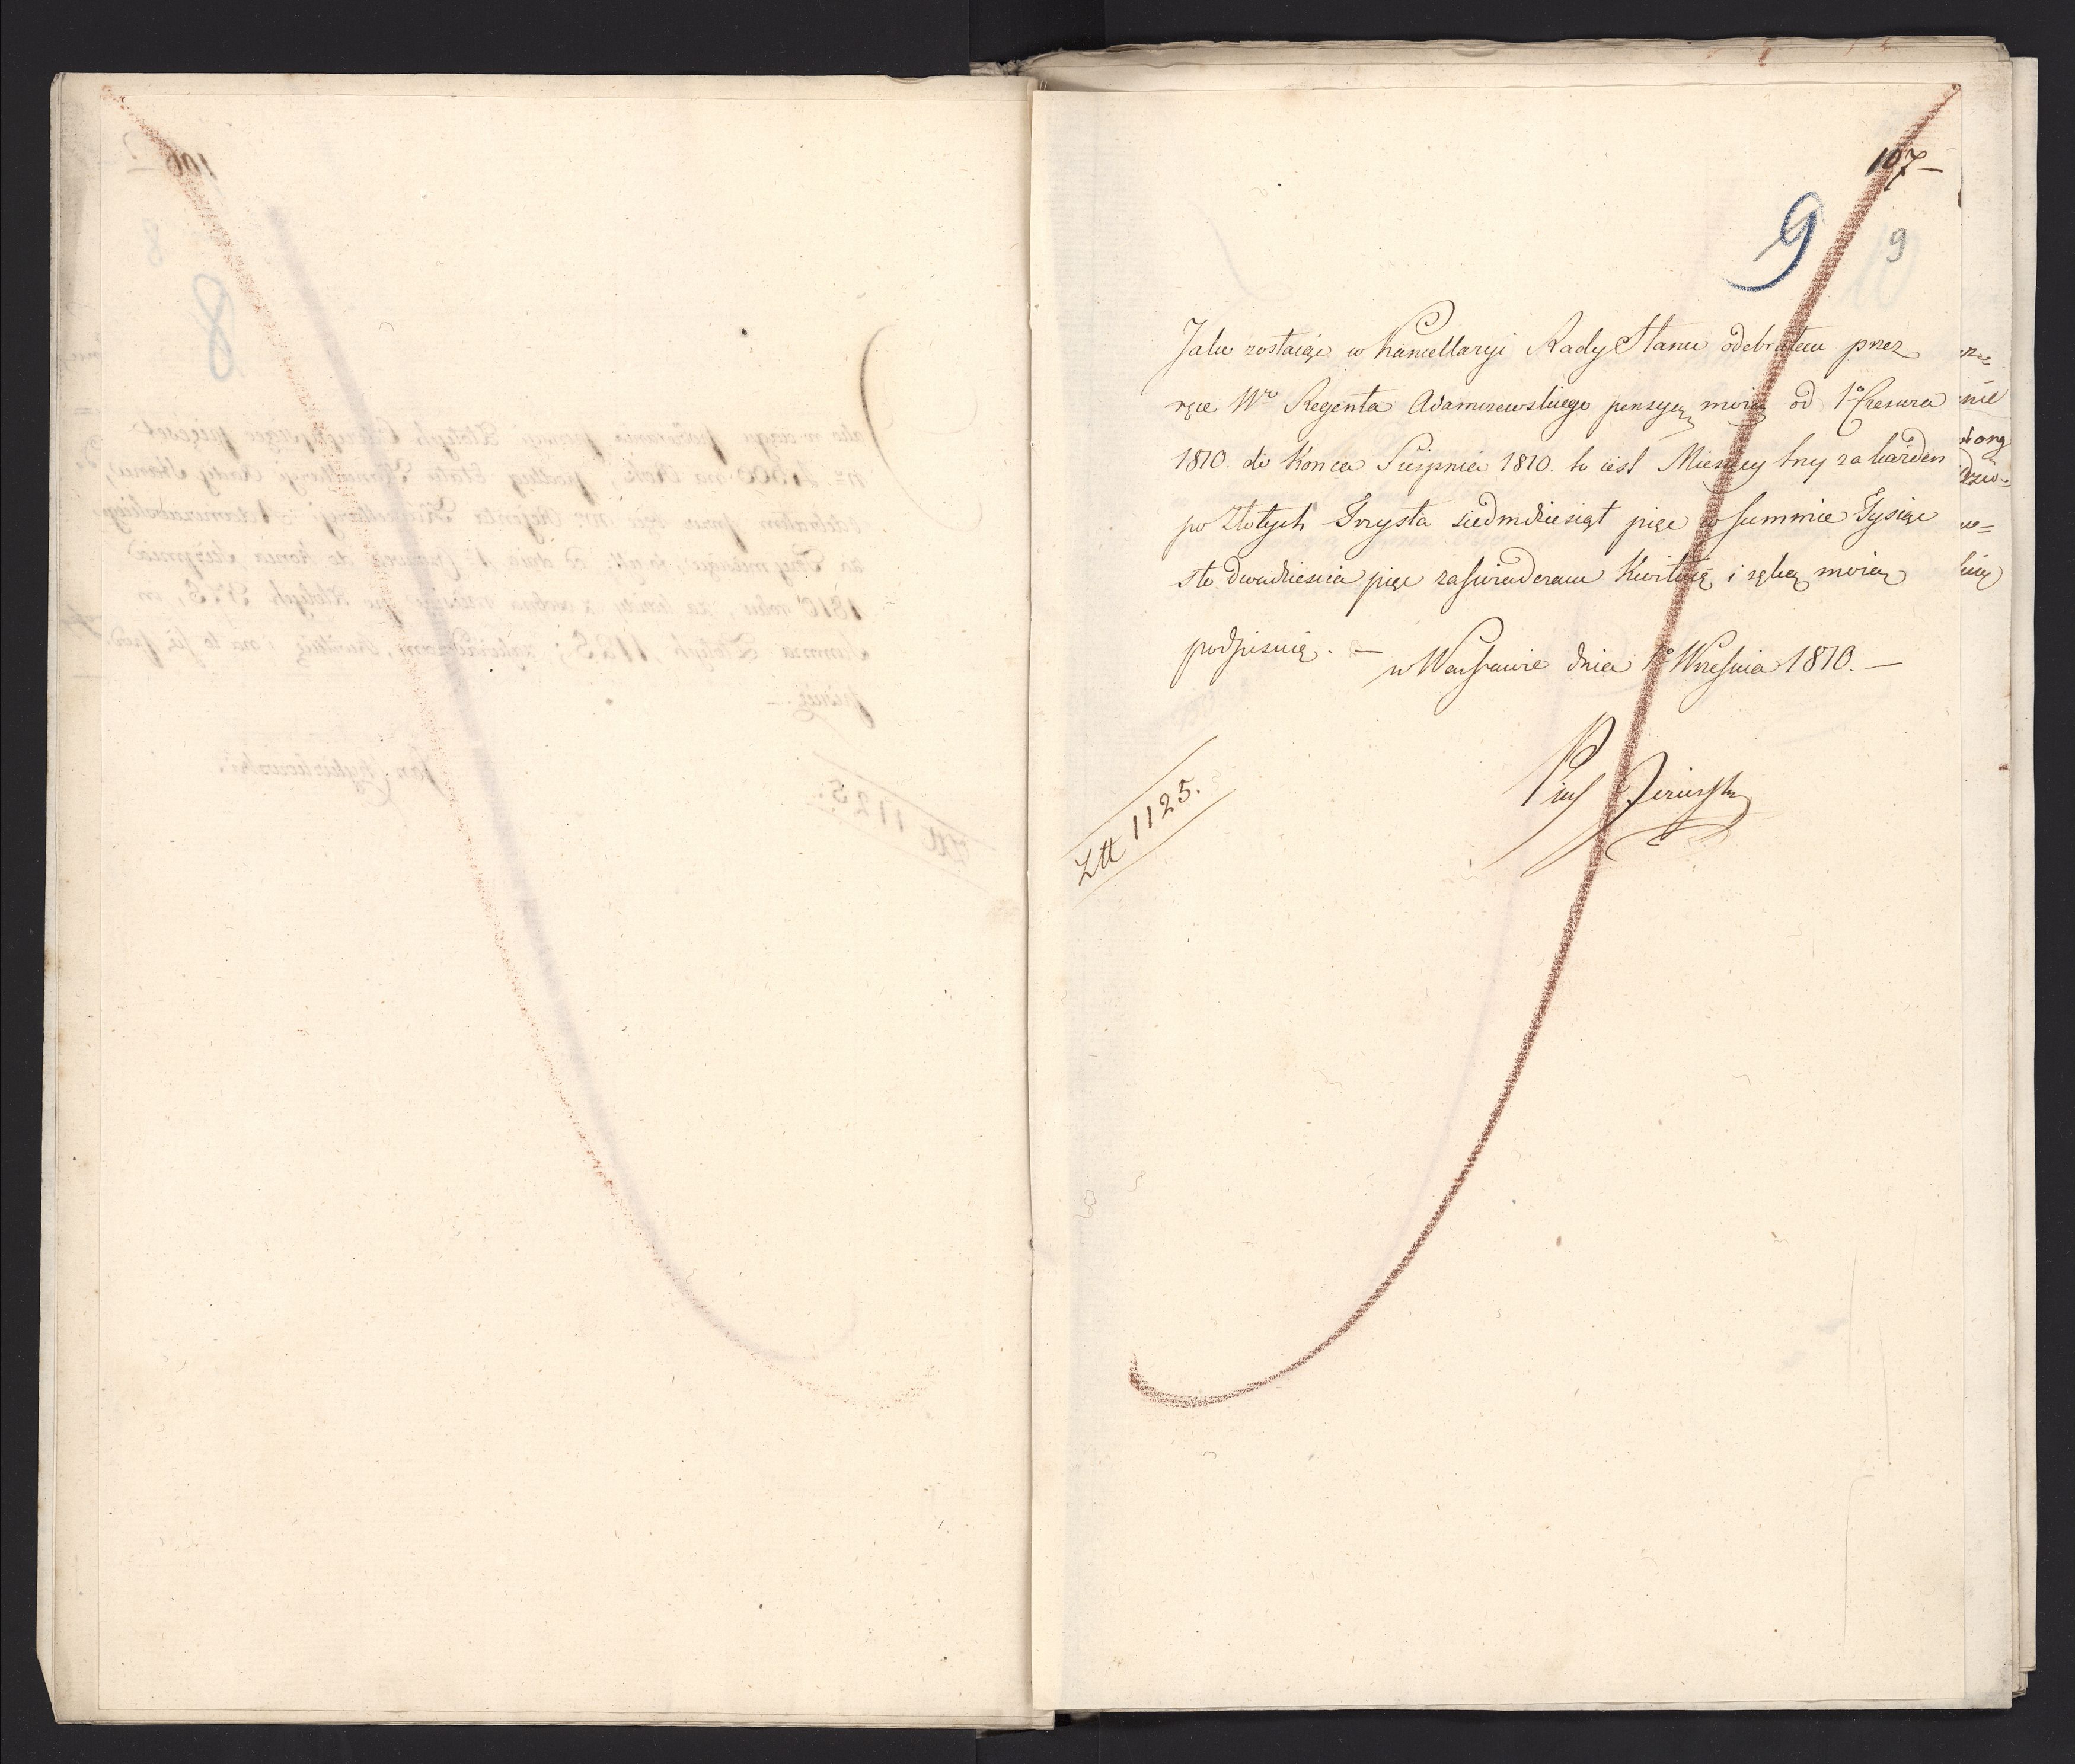 107
9
9
Jako zostaiąc w Kancellaryi Rady Stanu odebrałem przez
ręce Wo Regenta Adamczewskiego pensyą moią od 1o Czerwca
1810. do Konca Sierpnia 1810. to iest Miesięcy trzy za każden
po Złotych Trzysta siedmdziesiąt pięc w summie Tysiąc
sto dwadziescia pięc zaswiadczam Kwituię i ręką moią
podpisuię. —
w Warszawie dnia 1o Wrzesnia 1810. —
Pius
Ztt 1125.